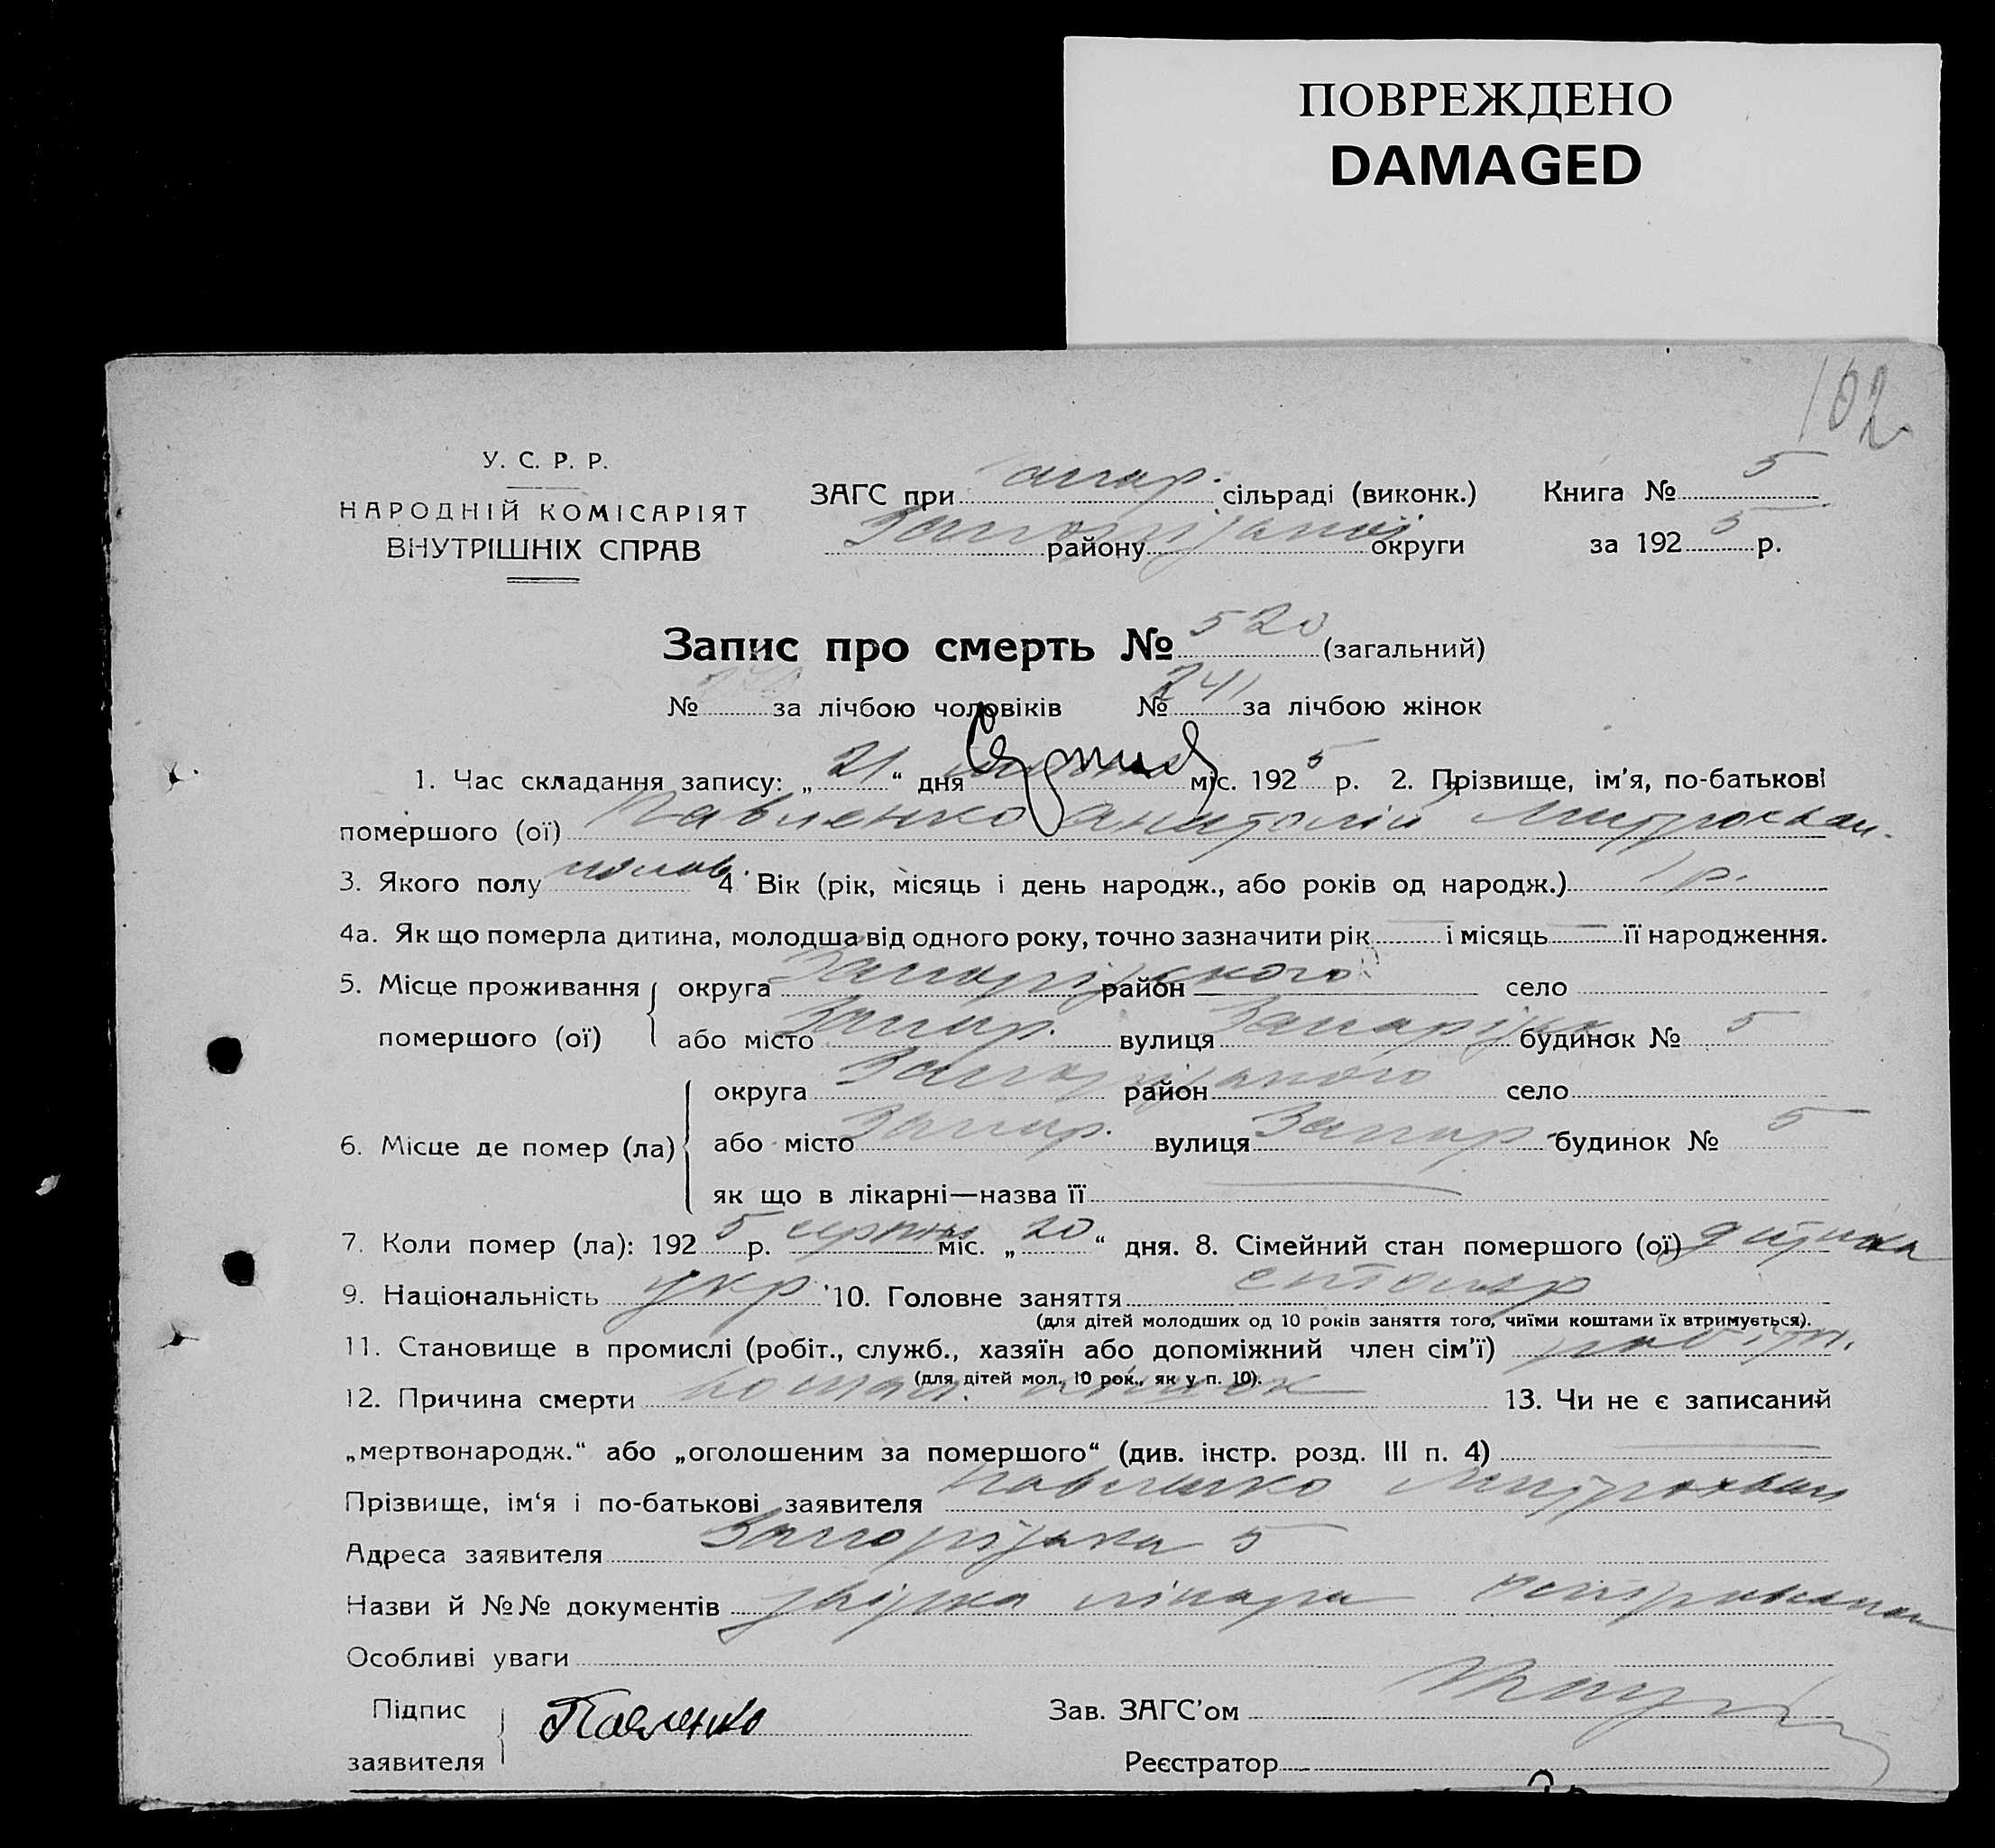 ПОВРЕЖДЕНО
DAMAGED
102
У. С. Р. Р.
НАРОДНІЙ КОМІСАРІЯТ
ВНУТРІШНІХ СПРАВ
ЗАГС при сільраді (виконк.) Книга № 5
району округи за 1925 р.
Запис про смерть № 520 (загальний)
№ за лічбою чоловіків № 241 за лічбою жінок
1. Час складання запису: „ 21 “ дня Серпня міс. 1925 р. 2. Прізвище, ім'я, по-батькові
помершого (ої) Павленко Анатолій Митрохван.
3. Якого полу чолов. 4 Вік (рік, місяць і день народж., або років од народж.) 1 р.
4а. Як що померла дитина, молодша від одного року, точно зазначити рік — і місяць — її народження.
5. Місце проживання округа Запорізького район село
помершого (ої) або місто Запор. вулиця Запорізьк будинок № 5
округа Запорізького район село
6. Місце де помер (ла) або місто Запор. вулиця Запор будинок № 5
як що в лікарні—назва її —
7. Коли помер (ла): 1925 р. серпня міс. „ 20 “ дня. 8. Сімейний стан помершого (ої) дитина
9. Національність укр 10. Головне заняття столяр
(для дітей молодших од 10 років заняття того, чиїми коштами їх втримується).
11. Становище в промислі (робіт., служб., хазяїн або допоміжний член сім'ї) робітн.
(для дітей мол. 10 рок., як у п. 10).
12. Причина смерти 13. Чи не є записаний
„мертвонародж.“ або „оголошеним за помершого“ (див. інстр. розд. III п. 4) —
Прізвище, ім'я і по-батькові заявителя Павленко Митрохван
Адреса заявителя Запорізька 5
Назви й №№ документів лікаря
Особливі уваги
Підпис Павленко Зав. ЗАГС'ом
заявителя Реєстратор